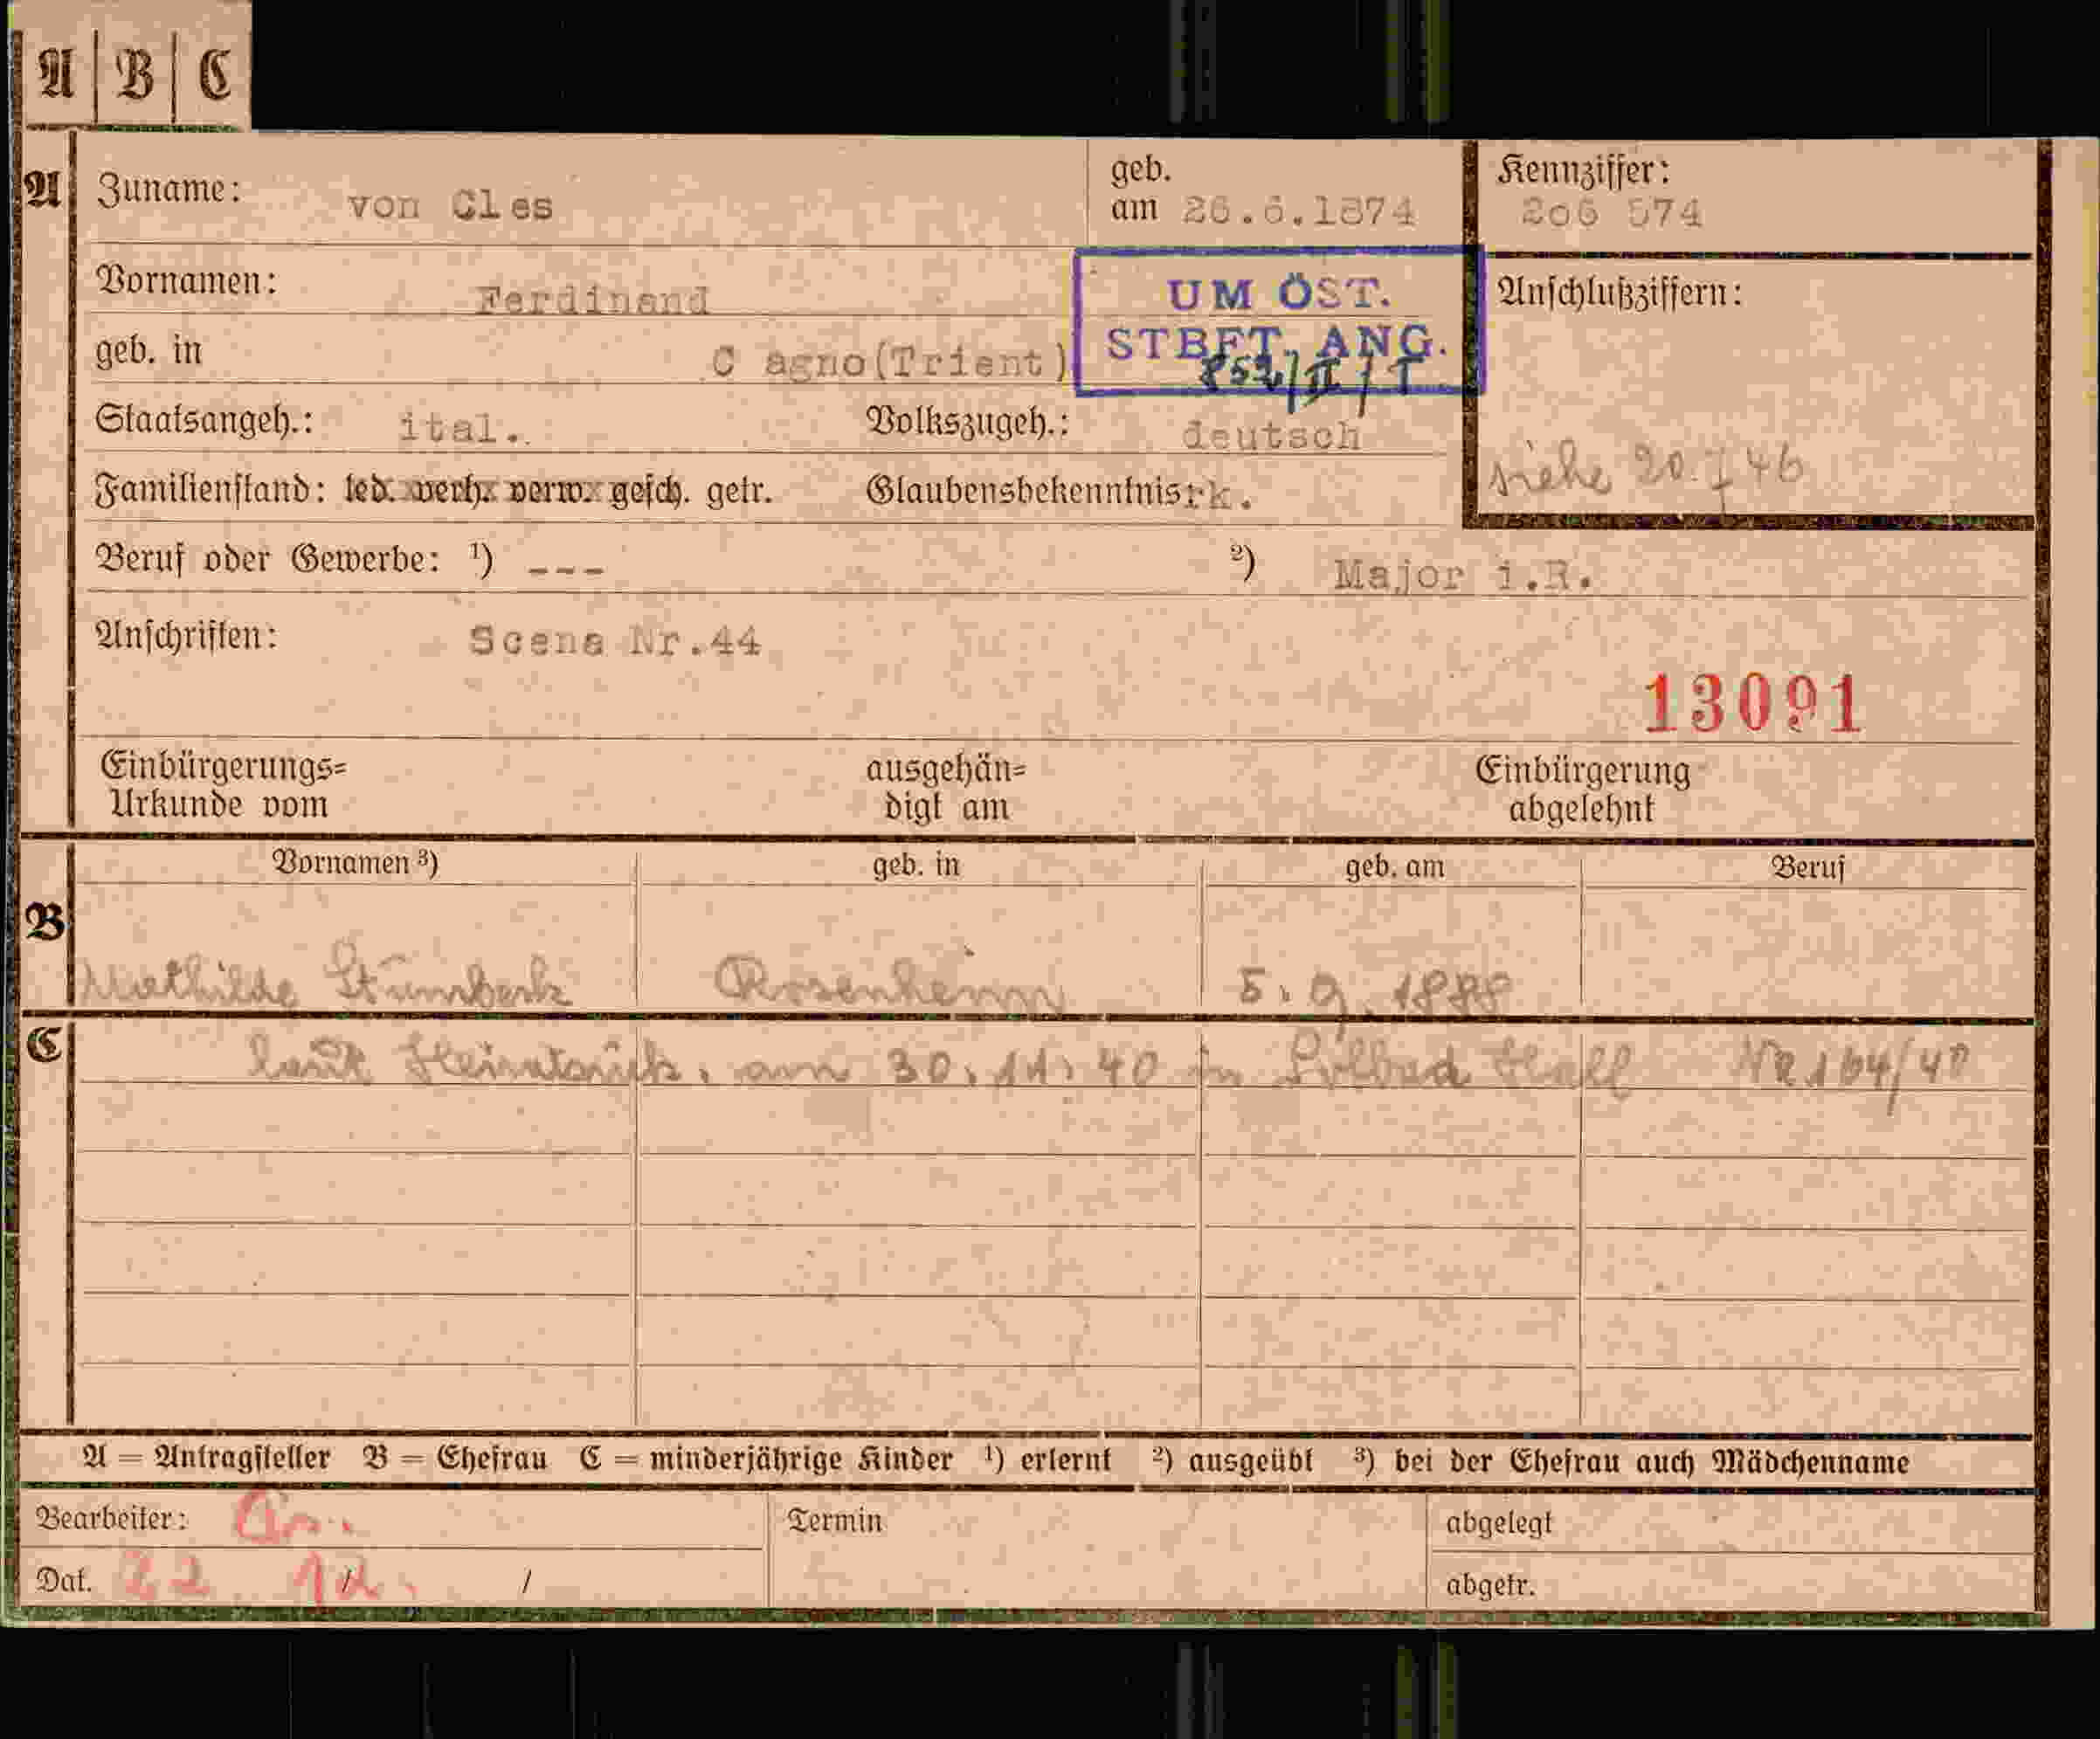 A B C
A Zuname: von Cles geb. am 26.6.1874 Kennziffer: 206 574
Vornamen: Ferdinand UM ÖST. STBFT. ANG. 852/II/T Anschlußziffern:
geb. in C agno(Trient)
Staatsangeh.: ital. Volkszugeh.: deutsch
siehe 20.746
Familienstand: led. verh. verw. gesch. getr. Glaubensbekenntnis rk.
Beruf oder Gewerbe: ¹) --- ²) Major i.R.
Anschriften: Scena Nr.44
13091
Einbürgerungs= ausgehän= Einbürgerung
Urkunde vom digt am abgelehnt
Vornamen ³) geb. in geb. am Beruf
B
Mathilde Rosenheim 5.9.1888
C laut am 30.11.40 in Solbad Hall
A = Antragsteller B = Ehefrau C = minderjährige Kinder ¹) erlernt ²) ausgeübt ³) bei der Ehefrau auch Mädchenname
Bearbeiter: Termin abgelegt
Dat. 22 / 12. / abgetr.